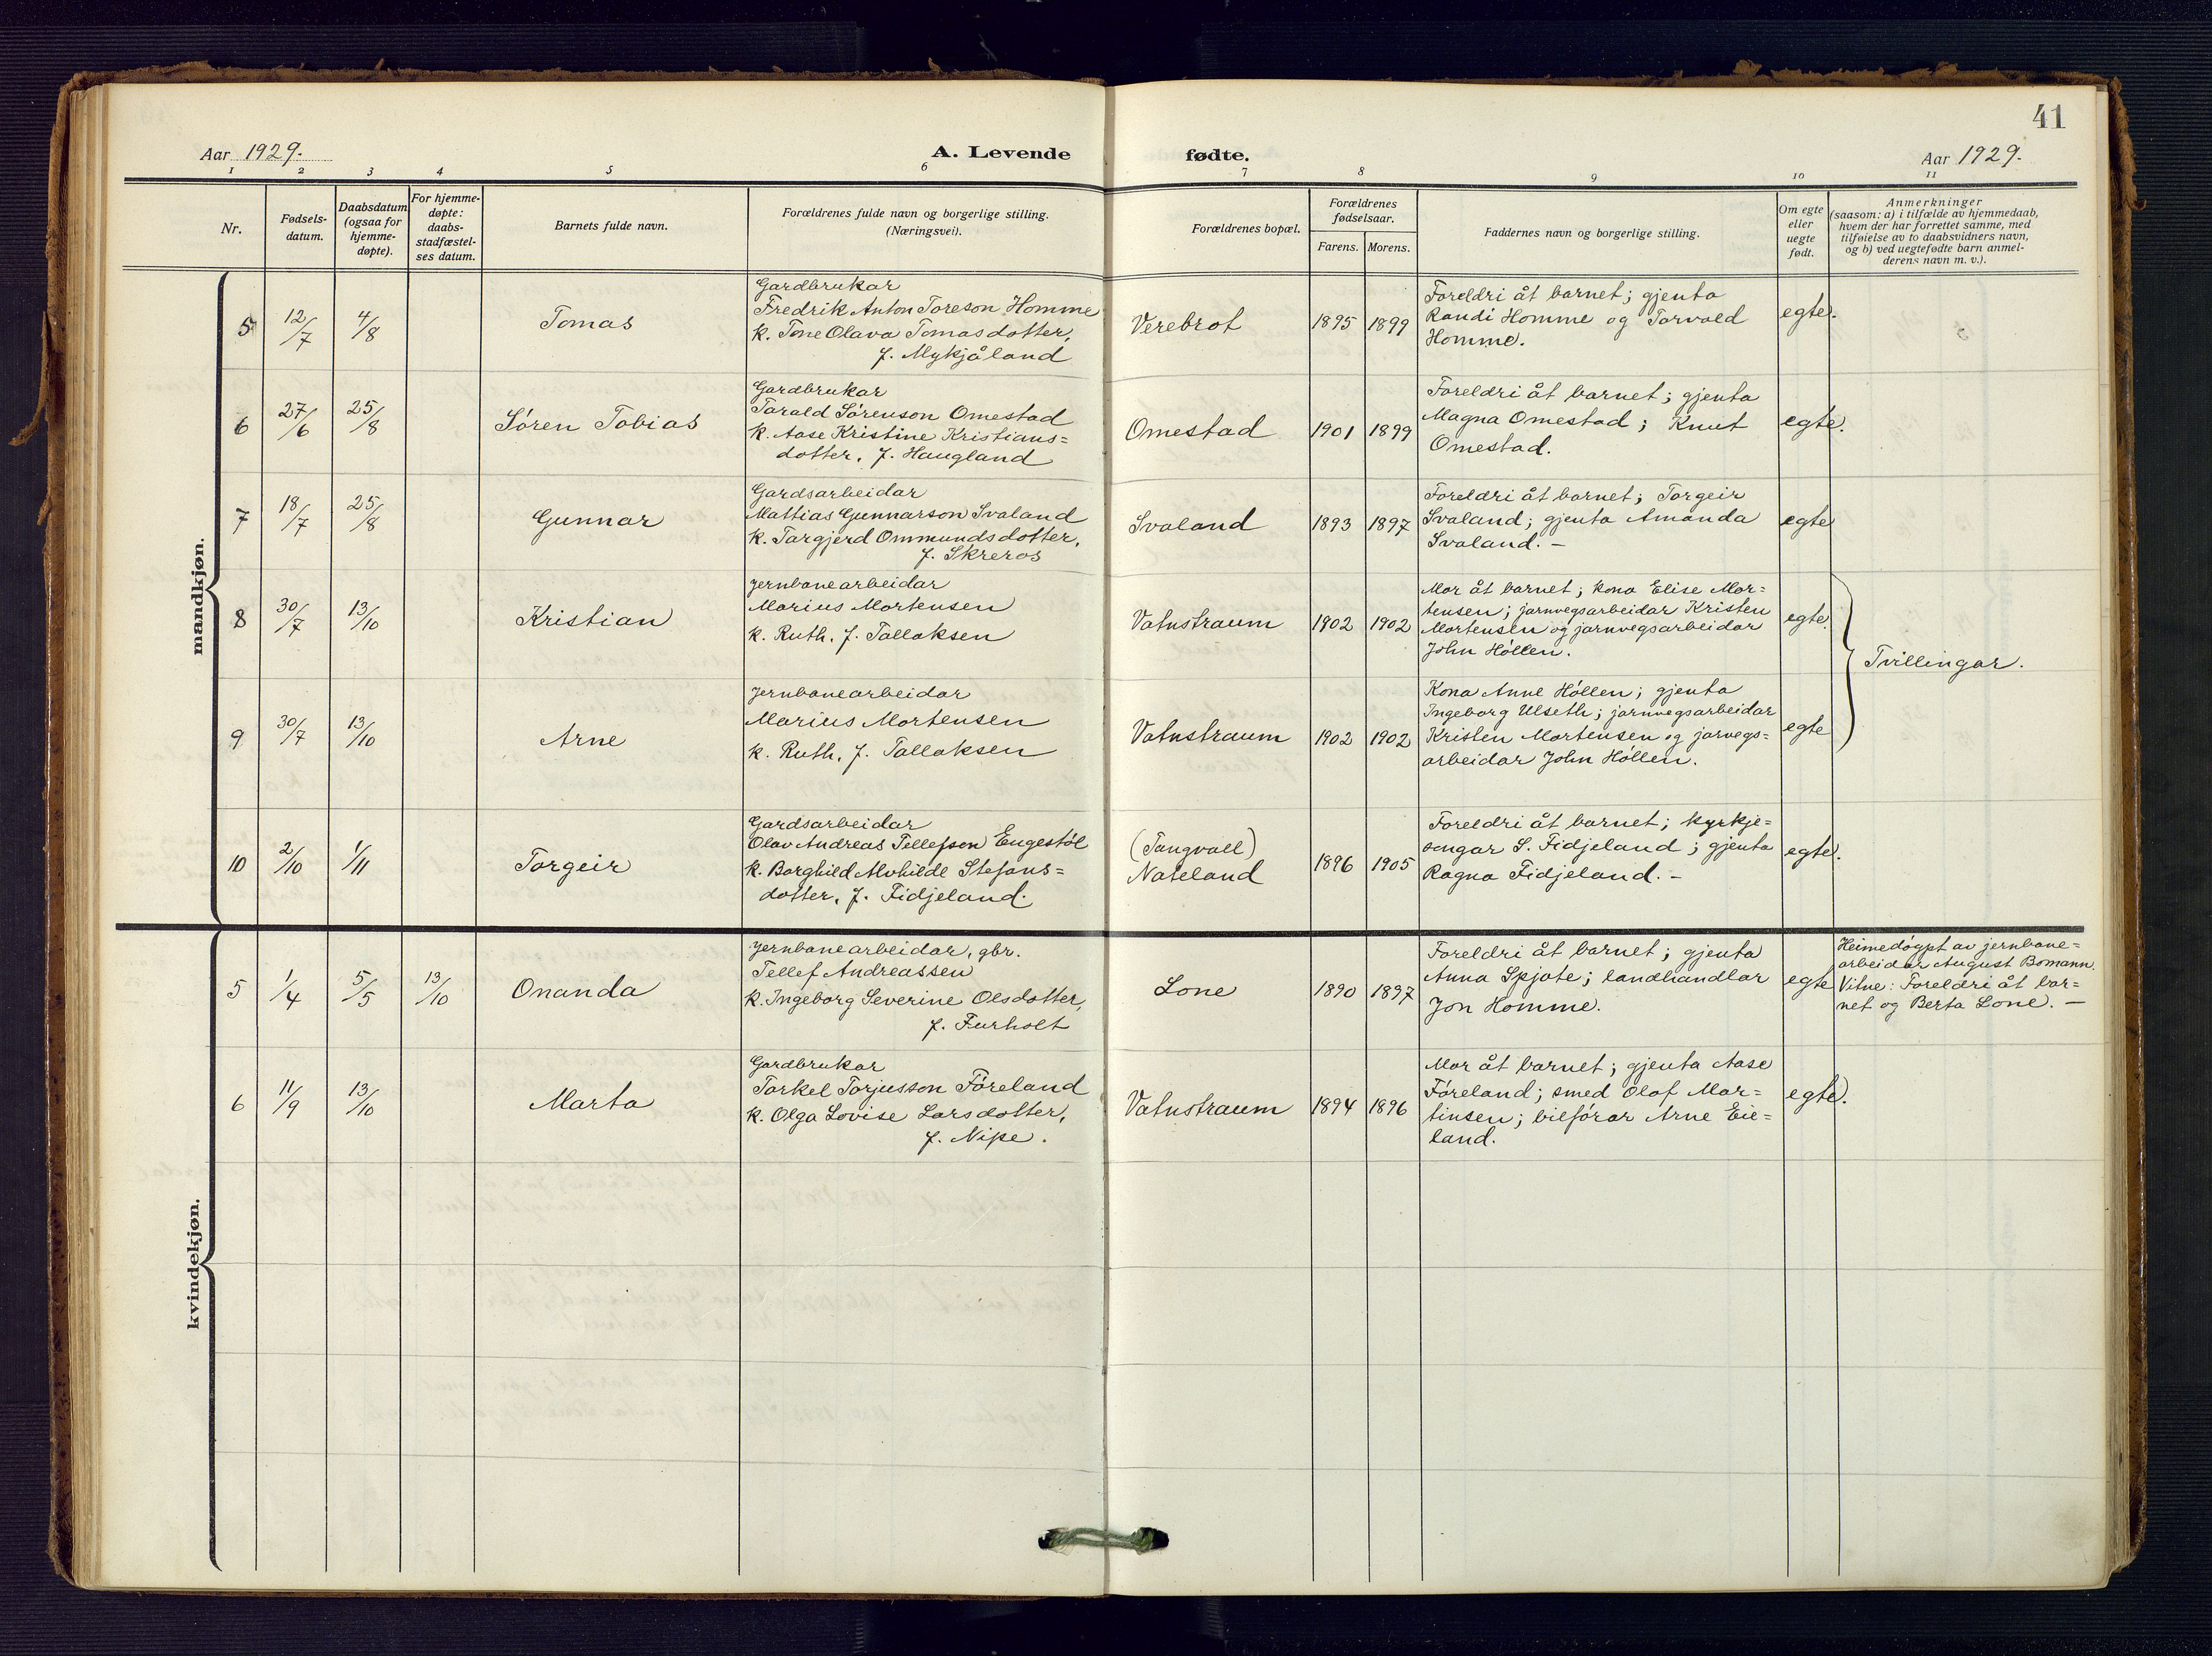 41
Aar 1929.
A. Levende fødte.
Aar 1929.
1 2 3 4 5 6 7 8 9 10 11
Nr.
Fødsels-
datum.
Daabsdatum
(ogsaa for
hjemme-
døpte).
For hjemme-
døpte:
daabs-
stadfæstel-
ses datum.
Barnets fulde navn.
Forældrenes fulde navn og borgerlige stilling.
(Næringsvei).
Forældrenes bopæl.
Forældrenes
fødselsaar.
Farens. Morens.
Faddernes navn og borgerlige stilling.
Om egte
eller
uegte
født.
Anmerkninger
(saasom: a) i tilfælde av hjemmedaab,
hvem der har forrettet samme, med
tilføielse av to daabsvidners navn,
og b) ved uegtefødte barn anmel-
derens navn m. v.).
mandkjøn.
5 12/7 4/8 Tomas
Gardbrukar
Fredrik Anton Toreson Homme
k. Tone Olava Tomasdotter,
f. Mykjåland
Verebrot 1895 1899
Foreldri åt barnet; gjenta
Randi Homme og Torvald
Homme.
egte.
6 27/6 25/8 Sóren Tobias
Gardbrukar
Tarald Sórenson Omestad
k. Aase Kristine Kristians=
dotter, f. Haugland
Omestad 1901 1899
Foreldri åt barnet; gjenta
Magna Omestad; Knut
Omestad.
egte.
7 18/7 25/8 Gunnar
Gardsarbeidar
Mattias Gunnarson Svaland
k. Targjerd Ommundsdotter,
f. Skreros
Svaland 1893 1897
Foreldri åt barnet; Torgeir
Svaland; gjenta Amanda
Svaland. –
egte
8 30/7 13/10 Kristian
Jernbanearbeidar
Marius Mortensen
k. Ruth, f. Tallaksen
Vatnstraum 1902 1902
Mor åt barnet; kona Elise Mor=
tensen; jarnvegsarbeidar Kristen
Mortensen og jarnvegsarbeidar
John Hóllen.
egte.
Tvillingar.
9 30/7 13/10 Arne
Jernbanearbeidar
Marius Mortensen
k. Ruth, f. Tallaksen
Vatnstraum 1902 1902
Kona Anne Hóllen; gjenta
Ingeborg Ulseth; jarnvegsarbeidar
Kristen Mortensen og jarvegs=
arbeidar John Hóllen.
egte
10 2/10 1/11 Torgeir
Gardsarbeidar
Olav Andreas Tellefson Engestól
k. Borghild Alvhilde Stefans=
dotter, f. Fidjeland.
(Tangvall)
Nateland 1896 1905
Foreldri åt barnet; kyrkje=
songar S. Fidjeland; gjenta
Ragna Fidjeland. –
egte.
kvindekjøn.
5 1/4 5/5 13/10 Onanda
Jernbanearbeidar, gbr.
Tellef Andreassen
k. Ingeborg Severine Olsdotter,
f. Furholt
Lone 1890 1897
Foreldri åt barnet; gjenta
Anna Spjote; landhandlar
Jon Homme.
egte
Heimedóypt av jernbane=
arbeidar August Bomann.
Vitne: Foreldri åt bar=
net og Berta Lone. –
6 11/9 13/10 Marta
Gardbrukar
Torkel Torjusson Fóreland
k. Olga Lovise Larsdotter,
f. Nipe.
Vatnstraum 1894 1896
Mor åt barnet; gjenta Aase
Fóreland; smed Olof Mar=
tinsen; bilfórar Arne Eie=
land.
egte.